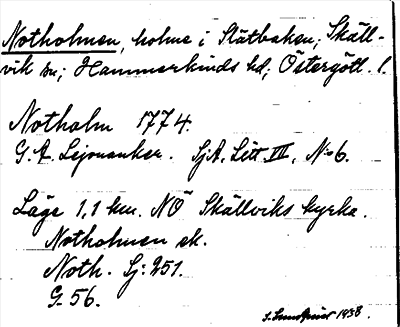 Notholmen, holme i Slätbaken; Skäll-
vik sn; Hammarkinds hd; Östergötl. l.
Notholm 1774.
G. A. Lejonanker. SjA, Litt III, No 6.
Läge 1,1 km. NÖ Skällviks kyrka.
Notholmen ek.
Noth. Sj: 251.
G. 56.
1938.